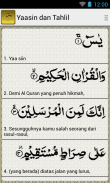 Yaasin dan Tahlil
يسٓ ۝
1. Yaa siin
وَالْقُرْآنِ الْحَكِيمِ ۝
2. Demi Al Quran yang penuh hikmah,
إِنَّكَ لَمِنَ الْمُرْسَلِينَ ۝
3. Sesungguhnya kamu salah seorang dari rasul-rasul,
عَلَىٰ صِرَاطٍ مُسْتَقِيمٍ ۝
4. (yang berada) diatas jalan yang lurus,